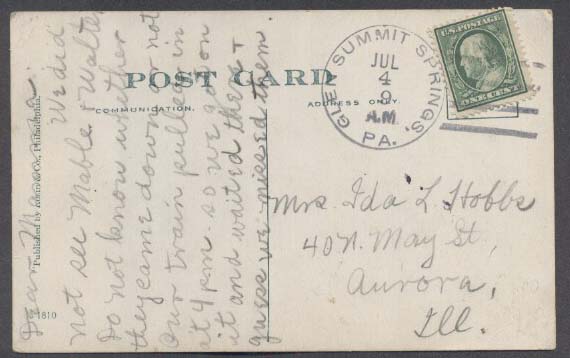 POST CARD
COMMUNICATION.
ADDRESS ONLY
Published by & Co., Philadelphia.
1810
Dear Mamma:
We did
not see Mable & Walter
Do not know whether
they came down or not
Our train pulled in
at 4 P.M. so we got on
it and waited there &
guess we missed them.
GLEN SUMMIT SPRINGS,
JUL
4
9
A.M.
PA.
U.S. POSTAGE
ONE CENT
Mrs Ida L Hobbs
40 N. May St,
Aurora,
Ill.